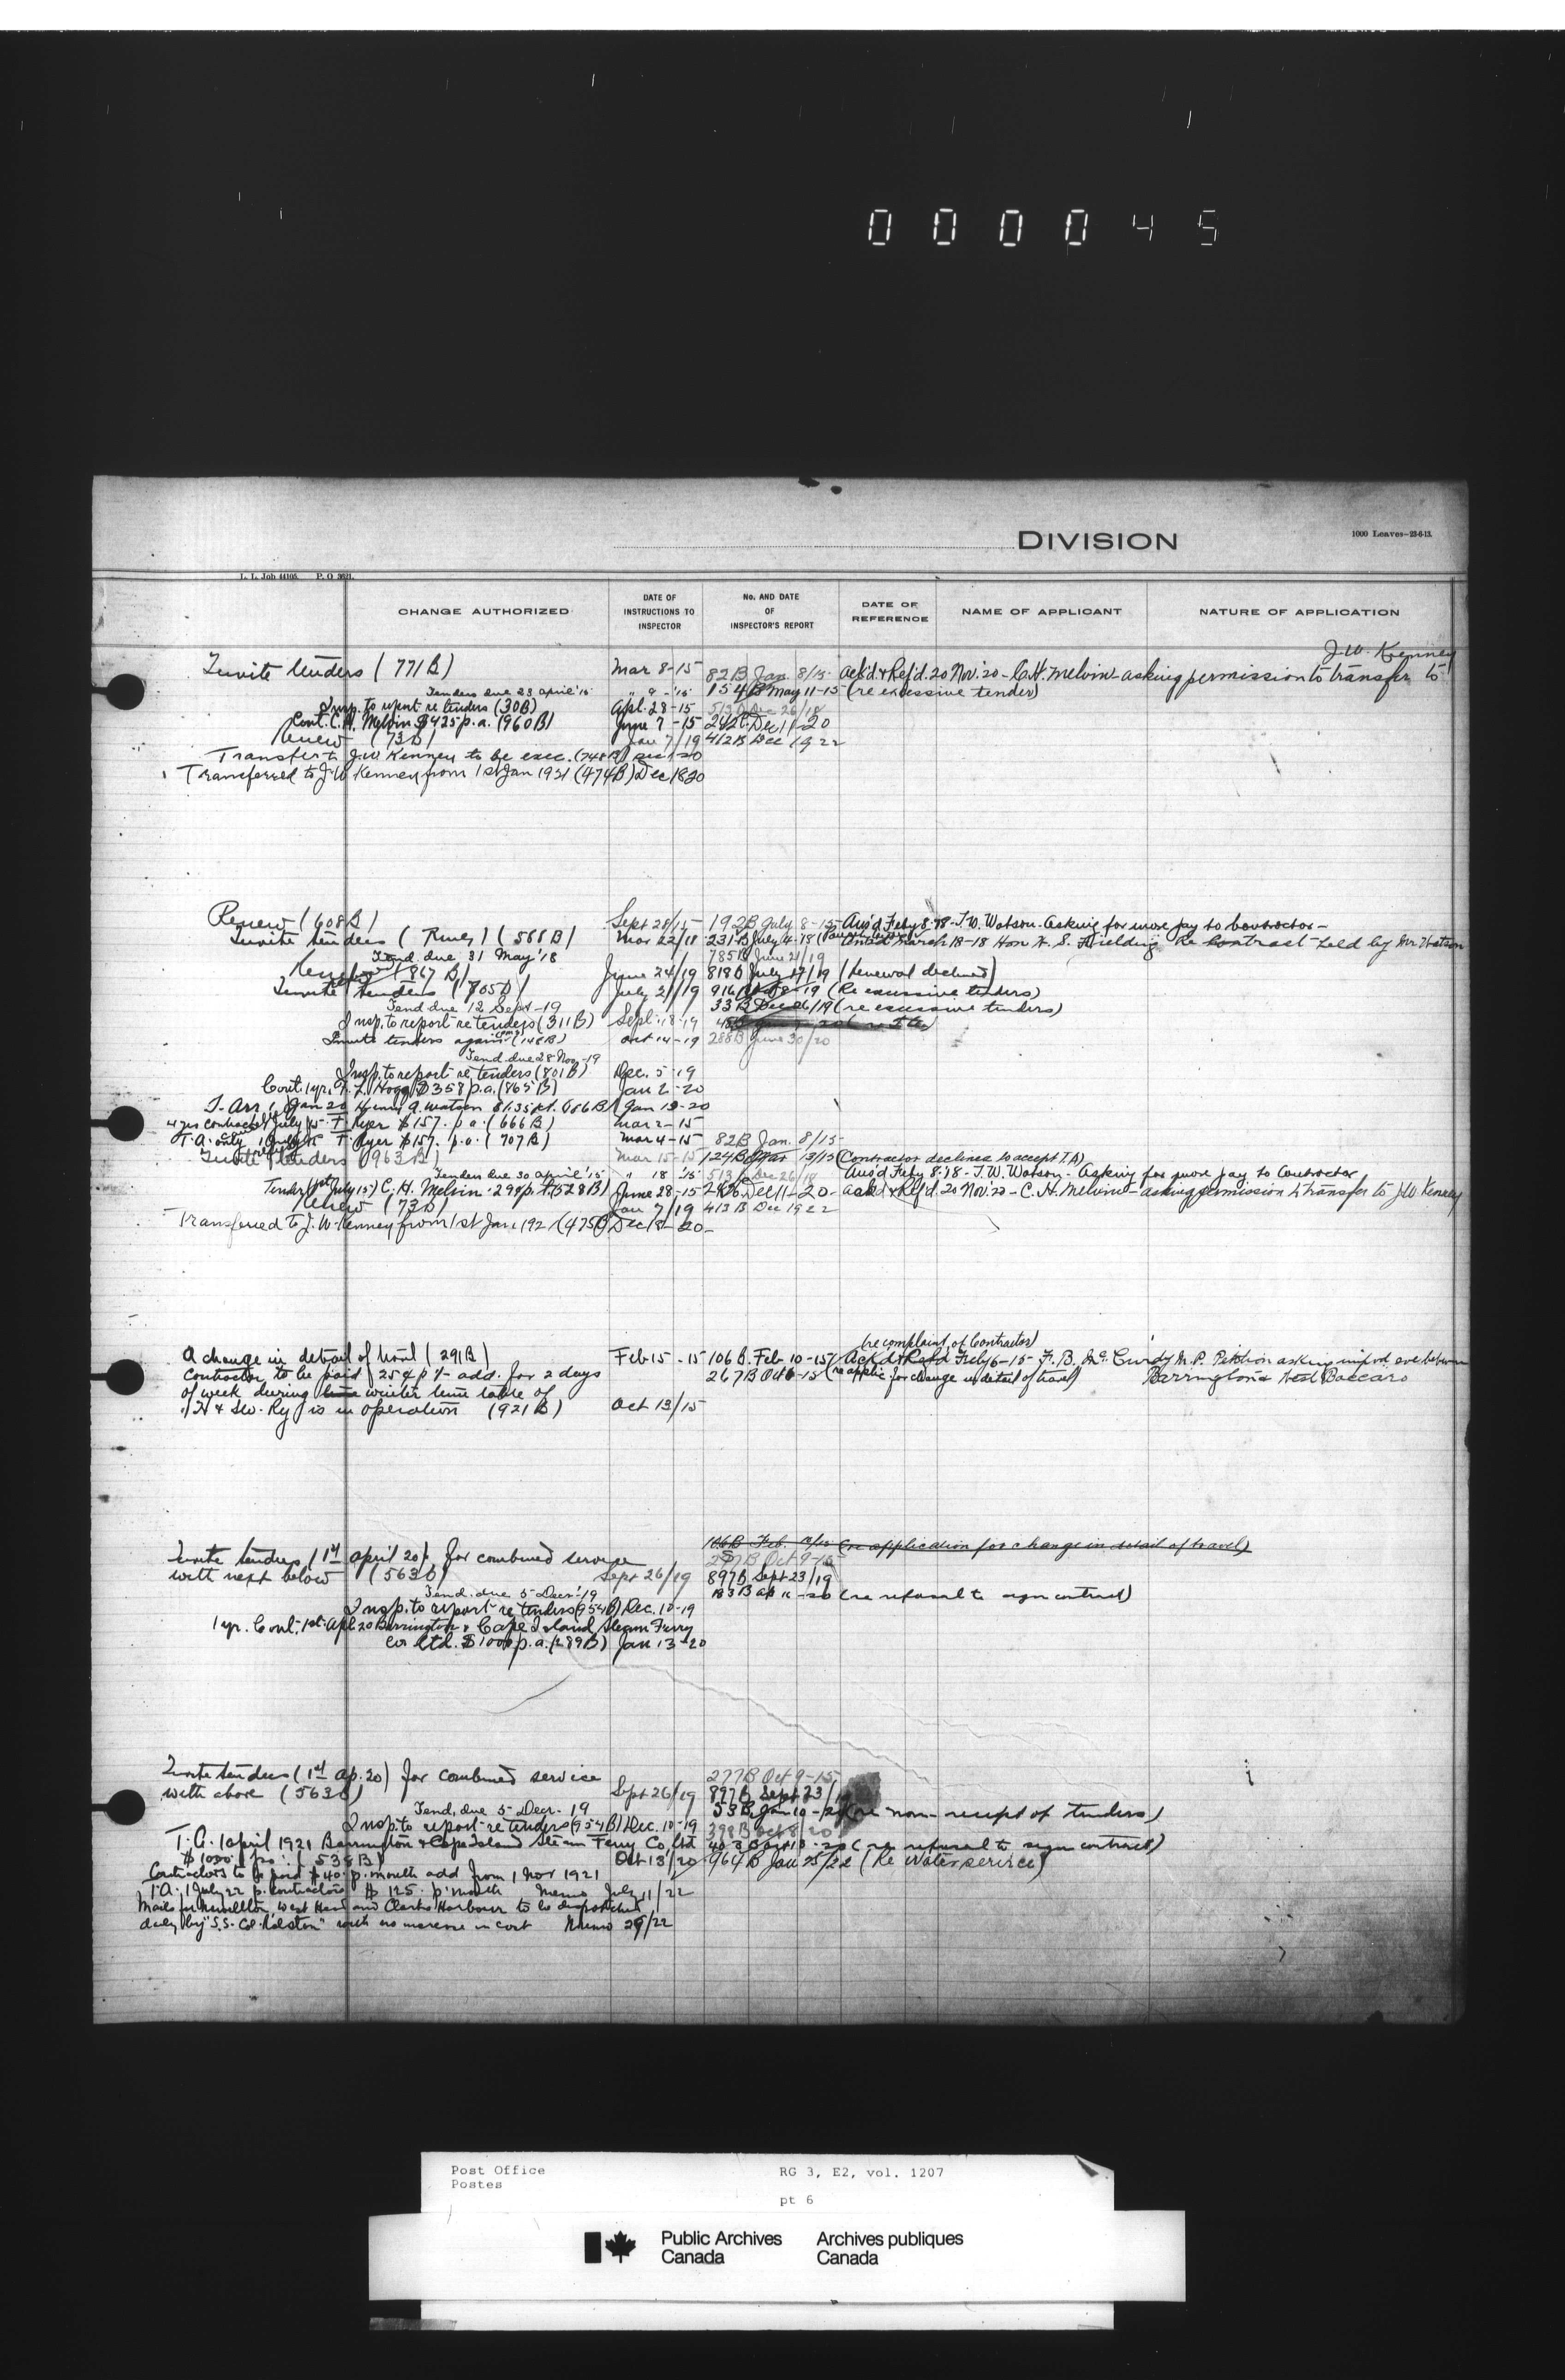 000045
DIVISION
1000 Leaves-23-6-13.
L. L. Job 44105. P. O 3621.
CHANGE AUTHORIZED
DATE OF INSTRUCTIONS TO INSPECTOR
No. AND DATE OF INSPECTOR'S REPORT
DATE OF REFERENCE
NAME OF APPLICANT
NATURE OF APPLICATION
J.W. Kenney
Invite tenders (771B) Mar 8-15 82B Jan. 8/15 ack'd & Ref'd. 20 Nov. '20 - C.H. Melvin - asking permission to transfer to
Tenders due 23 April '15 " 9 - '15 154B May 11-15 (re excessive tender)
Insp. to report re tenders (30B) Apl. 28-15 513 Dec 26/18
Cont. C.H. Melvin $425 p.a. (960B) June 7-15 242 Dec 11-20
Renew (73B) Jan 7/19 412B Dec 19 22
Transfer to J.W. Kenney to be exec. (748B)
Transferred to J.W. Kenney from 1st Jan 1921 (474B) Dec 18 20
Renew (608B) Sept 28/15 192B July 8-15 Ans'd Feby 8-18 - J.W. Watson - asking for more pay to Contractor -
Invite tenders (568B) Mar 22/18 231B July 4-18 March 18-18 Hon W. S. Fielding Re Contract held by Mr Watson
Tend. due 31 May '18 785B June 21/19
Renew (867B) June 24/19 818B July 17/19 (Renewal declined)
Invite tenders (705B) July 21/19 916 19 (Re excessive tenders)
Tend due 12 Sept - 19 33B Dec 26/19 (re excessive tenders)
Insp. to report re tenders (311B) Sept. 18-19
Invite tenders again (148B) Oct 14-19 288B June 30/20
Tend. due 28 Nov. -19
Insp. to report re tenders (801B) Dec. 5-19
Cont. 1 yr. Hogg $358 p.a. (865B) Jan 2-20
T. Arr. 1 Jan 20 Henry A. Watson $1.35 rt. (686B) Jan 13-20
4 yrs contract July 15 T. Ryer $157. p.a. (666B) Mar 2-15
T.A. only 1 July 15 T. Ryer $157. p.a. (707B) Mar 4-15 82B Jan. 8/15
Invite tenders (963B) Mar 15-15 124B Mar 13/15 (Contractor declines to accept T.A.)
Tenders due 30 April '15 " 18 '15 513 Dec 26/18 Ans'd Feby 8-18 - J.W. Watson - Asking for more pay to Contractor
Tender (1st July 15) C.H. Melvin 298 p.a. (528B) June 28-15 Dec 11-20 - ack'd & Ref'd. 20 Nov. '20 - C.H. Melvin - asking permission to transfer to J.W. Kenney
Renew (73B) Jan 7/19 413B Dec 19 22
Transferred to J.W. Kenney from 1st Jan. 1921 (475B) Dec 18-20 -
(re complaint of Contractor)
A change in detail of travel (291B) Feb 15-15 106B. Feb 10-15 Ack'd & Ref'd Feby 6-15 - F.B. McCurdy M.P. Petition asking between
Contractor to be paid 25¢ p t add. for 2 days 267B Oct 6-15 (re applic. for change in detail of travel) Barrington & West Baccaro
of week during winter time table of
H & SW. Ry is in operation (921B) Oct 13/15
106B Feb. 10/15 (re application for change in detail of travel)
Invite tenders (1st April 20) for combined service 277B Oct 9-15
with next below (563B) Sept 26/19 897B Sept 23/19
Tend. due 5 Decr. '19 (re refusal to sign contract)
Insp. to report re tenders (954B) Dec. 10-19
1 yr. Cont. 1st Apl 20 Barrington & Cape Island Steam Ferry
Co. Ltd. $1000 p.a. (289B) Jan 13-20
Invite tenders (1st Ap. 20) for combined service 277B Oct 9-15
with above (563B) Sept 26/19 897B Sept 23/19
Tend. due 5 Decr. 19 53B Jan 10-20 (re non-receipt of tenders)
Insp. to report re tenders (954B) Dec. 10-19 398B Oct 8/20
T.A. 1 April 1921 Barrington & Cape Island Steam Ferry Co. Ltd (re refusal to sign contract)
$1000 p.a. (538B) Oct 13/20 964B Jan 25/22 (Re Water service)
Contractors to be paid $40 p. month add from 1 Nov 1921
T.A. 1 July 22 p. contractors $125. p. month Memo July 11/22
Mails for Newellton, West Head and Clarks Harbour to be dispatched
daily by "S.S. Col. Ralston" with no increase in cost Memo 29/22
Post Office
Postes
RG 3, E2, vol. 1207
pt 6
Public Archives Canada
Archives publiques Canada